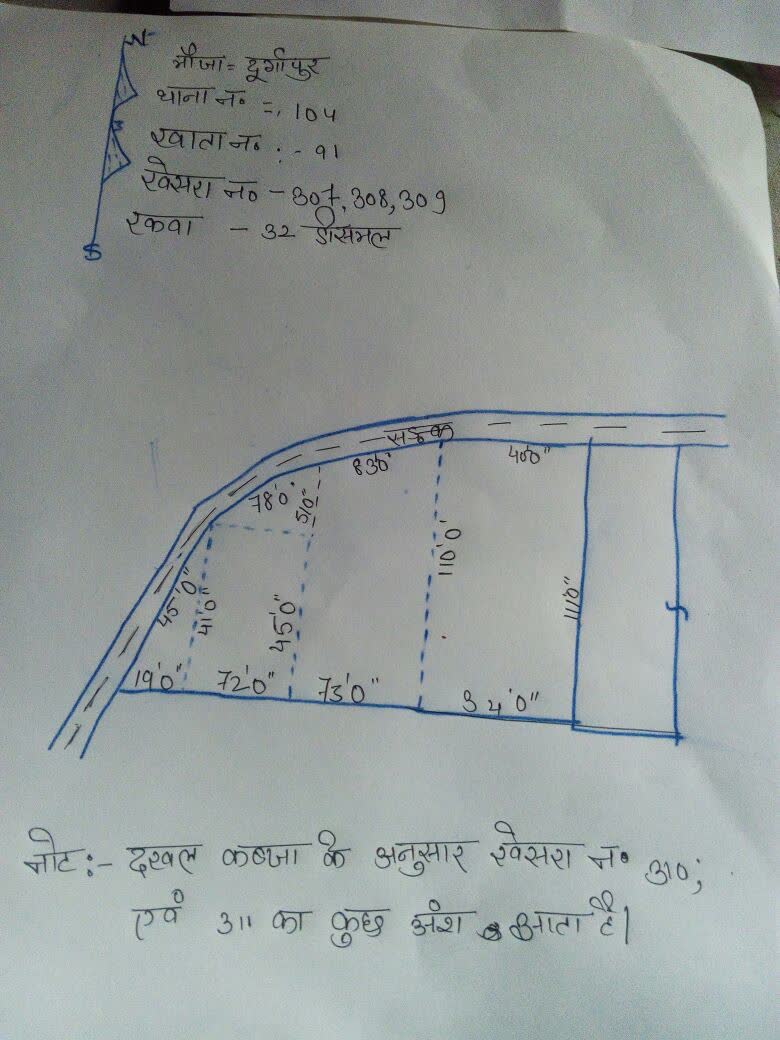 N
मौजा = दूर्गापुर
थाना नं० =, 104
खाता नं० : - 91
खेसरा नं० - 307, 308, 309
रकवा - 32 डीसमल
S
सड़क
83'0"
40'0"
78'0"
51'0"
110'0"
45'0"
41'0"
45'0"
111'0"
19'0"
72'0"
73'0"
34'0"
नोट :- दखल कब्जा के अनुसार खेसरा नं० 310;
एवं 311 का कुछ अंश आता है।